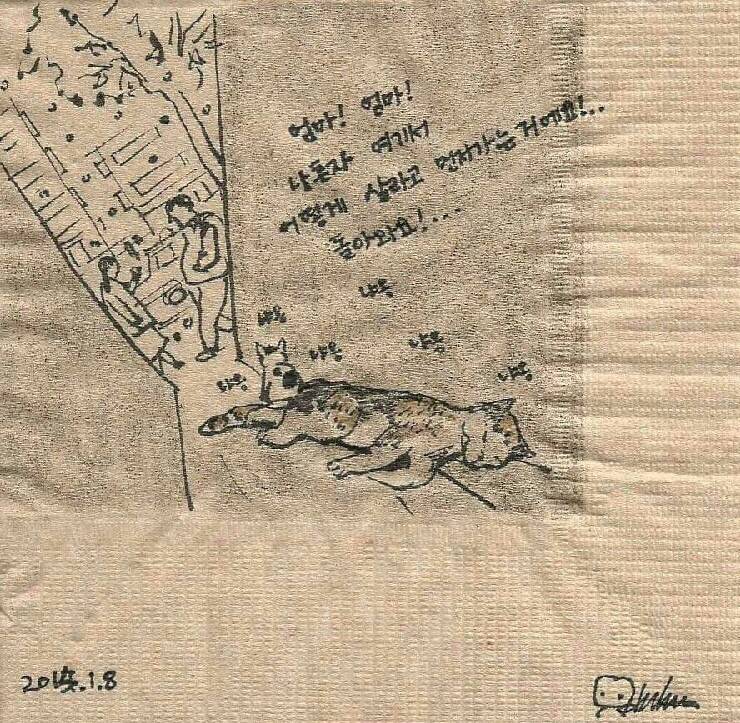 엄마! 엄마!
나혼자 여기서
어떻게 살라고 먼저가는 거예요!..
돌아와요!...
냐옹
냐옹
냐옹
냐옹
냐옹
냐옹
.1.8